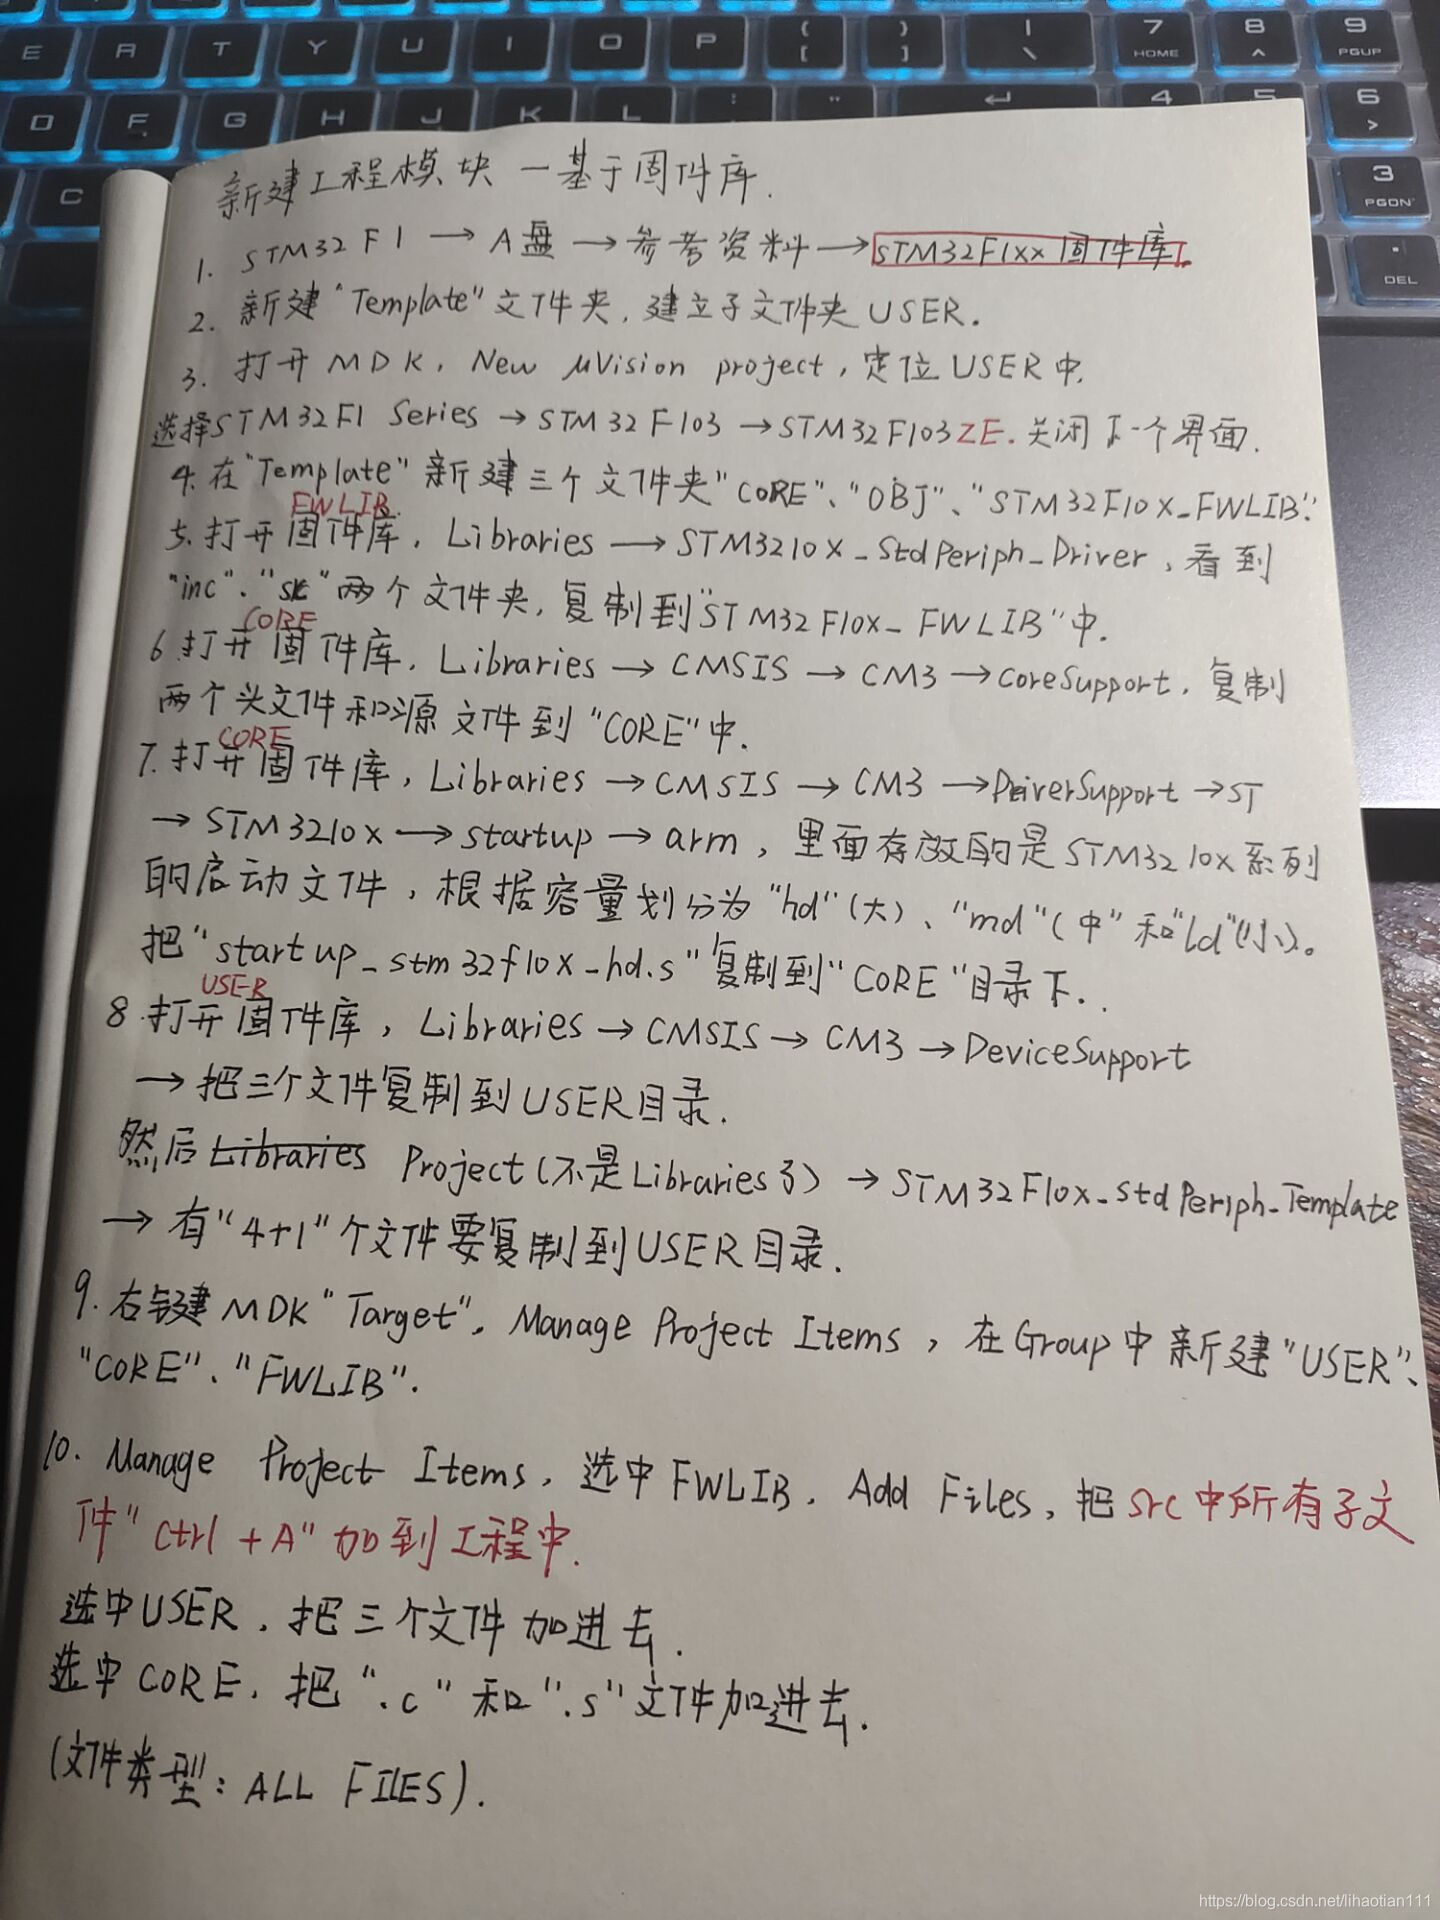 新建工程模块 — 基于固件库.
1. STM32 F1 → A盘 → 参考资料 → STM32F1xx 固件库.
2. 新建"Template"文件夹, 建立子文件夹 USER.
3. 打开 MDK, New μVision project, 定位 USER 中.
选择STM32F1 Series → STM32 F103 → STM32F103ZE. 关闭下一个界面.
4. 在"Template"新建三个文件夹"CORE"、"OBJ"、"STM32F10X_FWLIB".
FWLIB.
5. 打开固件库, Libraries → STM3210X_StdPeriph_Driver, 看到
"inc"、"src"两个文件夹, 复制到"STM32F10x_FWLIB"中.
CORE
6. 打开固件库, Libraries → CMSIS → CM3 → CoreSupport, 复制
两个头文件和源文件到"CORE"中.
CORE
7. 打开固件库, Libraries → CMSIS → CM3 → DeiverSupport → ST
→ STM3210x → startup → arm, 里面存放的是STM3210x系列
的启动文件, 根据容量划分为"hd"(大)、"md"(中"和"ld"(小)。
把"startup_stm32f10x_hd.s"复制到"CORE"目录下.
USER
8. 打开固件库, Libraries → CMSIS → CM3 → DeviceSupport
→ 把三个文件复制到USER目录.
然后 Libraries Project(不是Libraries了) → STM32F10x_StdPeriph_Template
→ 有"4+1"个文件要复制到USER目录.
9. 右键MDK"Target", Manage Project Items, 在Group中新建"USER"、
"CORE"、"FWLIB".
10. Manage Project Items, 选中FWLIB, Add Files, 把src中所有子文
件"Ctrl + A"加到工程中.
选中USER, 把三个文件加进去.
选中CORE, 把".c"和".s"文件加进去.
(文件类型: ALL FILES).
E R T Y U I O P { [ } ] | \ 7 HOME 8 ^ 9 PGUP
D F G H J K L : " ↵ 4 5 6 >
C 3 PGDN
. DEL
https://blog.csdn.net/lihaotian111